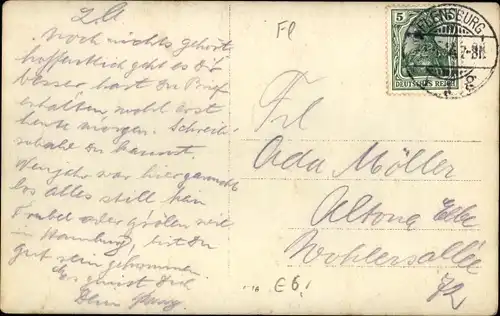 L. A
Noch nichts gehört
hoffentlich geht es Dir
besser, hast du Brief
erhalten, wohl erst
heute morgen. Schreib
sobald du kannst.
Neujahr war hier garnichts
los alles still kein
Trubel oder grölen wie
in Hamburg, bist Du
gut rein gekommen.
Es grüsst Dich
Dein
Fl
5
DEUTSCHES REICH
FLENSBURG
Frl
Ada Möller
Altona Elbe
Wohlersallee
72
E6!